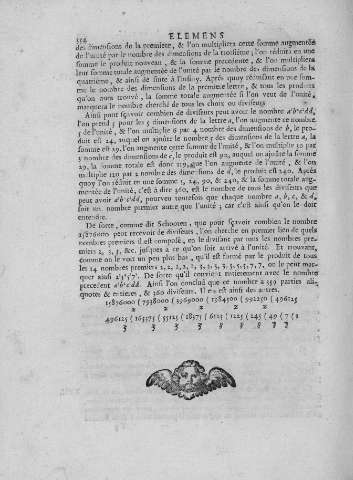 ELEMENS
des dimensions de la premiere, & l'on multipliera cette somme augmentée
de l'unité par le nombre des dimensions de la troisiéme, l'on réduira en une
somme le produit nouveau, & la somme precedente, & l'on multipliera
leur somme totale augmentée de l'unité par le nombre des dimensions de la
quatriéme, & ainsi de suite à l'infiny. Aprés quoy réünissant en une somme
le nombre des dimensions de la premiere lettre, & tous les produits
qu'on aura trouvé, la somme totale augmentée si l'on veut de l'unité,
marquera le nombre cherché de tous les choix ou diviseurs
Ainsi pour sçavoir combien de diviseurs peut avoir le nombre
l'on prend 5 pour les 5 dimensions de la lettre a, l'on augmente ce nombre
5 de l'unité, & l'on multiplie 6 par 4 nombre des dimensions de b, le produit
est 24, auquel on ajoûte le nombre 5 des dimensions de la lettre a, la
somme est 29, l'on augmente cette somme de l'unité, & l'on multiplie 30 par
3 nombre des dimensions de c, le produit est 90, auquel on ajoûte la somme
29, la somme totale est donc 119, que l'on augmente de l'unité, & l'on
multiplie 120 par 2 nombre des dimensions de d, le produit est 240. Aprés
quoy l'on réduit en une somme 5, 24, 90, & 240, & la somme totale augmentée
de l'unité, c'est à dire 360, est le nombre de tous les diviseurs que
peut avoir pourveu toutefois que chaque nombre a, b, c, & d,
soit un nombre premier autre que l'unité; car c'est ainsi qu'on le doit
entendre.
De sorte, comme dit Schooten, que pour sçavoir combien le nombre
15876000 peut recevoir de diviseurs, l'on cherche en premier lieu de quels
nombres premiers il est composé, en le divisant par tous les nombres premiers
2, 3, 5, &c. jusques à ce qu'on soit arrivé à l'unité. Et trouvant,
comme on le voit un peu plus bas, qu'il est formé par le produit de tous
les 14 nombres premiers 2, 2, 2, 2, 2, 3, 3, 3, 3, 5, 5, 5, 7, 7, on le peut marquer
ainsi De sorte qu'il convient entierement avec le nombre
precedent Ainsi l'on conclud que ce nombre a 359 parties aliquotes
& entieres, & 360 diviseurs. Il en est ainsi des autres.
15876000 ( 7938000 ( 3969000 ( 1984500 ( 992250 ( 496125
2 2 2 2 2
496125 ( 165375 ( 55125 ( 18375 ( 6125 ( 1225 ( 245 ( 49 ( 7 ( 1
3 3 3 3 5 5 5 7 7